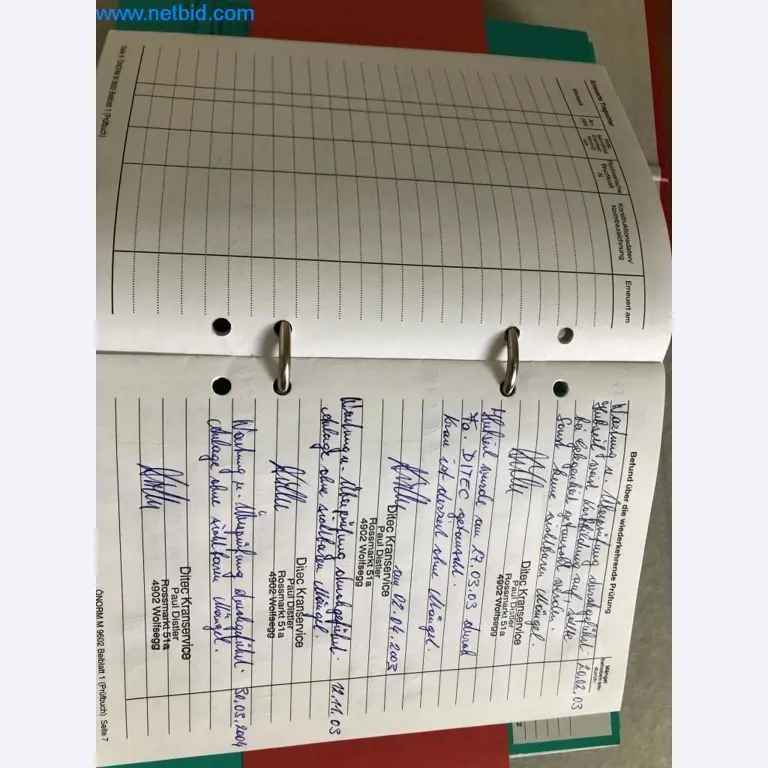 www.netbid.com
Erneuert am
Konstruktionsdaten/
Normbezeichnung
Bruchkraft
N
Seite 6 ÖNORM M 9602 Beiblatt 1 (Prüfbuch)
Befund über die wiederkehrende Prüfung
Mängel
behoben am:
durch:
Wartung u. Überprüfung durchgeführt. 20.02.03
Hubseil weist auf, sollte
bei Gelegenheit getauscht werden.
Sonst keine sichtbaren Mängel.
Ditec Kranservice
Paul Distler
Rossmarkt 51a
4902 Wolfsegg
Hubseil wurde am 17.03.03 durch
Fa. DITEC getauscht
Kran ist derzeit ohne Mängel
am 02.04.2003
Ditec Kranservice
Paul Distler
Rossmarkt 51a
4902 Wolfsegg
Wartung u. Überprüfung durchgeführt. 12.11.03
Anlage ohne sichtbaren Mängel.
Ditec Kranservice
Paul Distler
Rossmarkt 51a
4902 Wolfsegg
Wartung u. Überprüfung durchgeführt. 30.09.2004
Anlage ohne sichtbare Mängel.
Ditec Kranservice
Paul Distler
Rossmarkt 51a
4902 Wolfsegg
ÖNORM M 9602 Beiblatt 1 (Prüfbuch) Seite 7